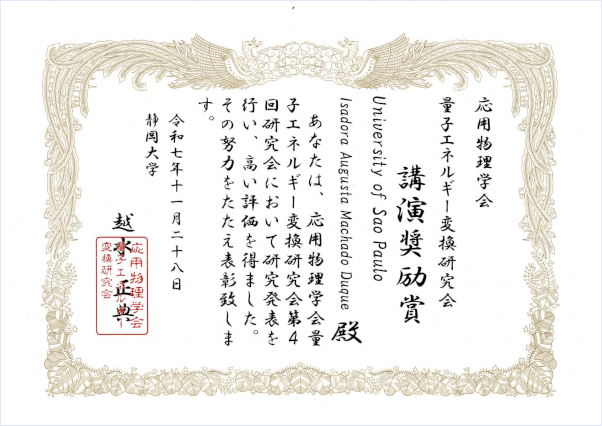 応用物理学会
量子エネルギー変換研究会
講演奨励賞
University of Sao Paulo
Isadora Augusta Machado Duque
殿
あなたは、応用物理学会量
子エネルギー変換研究会第４
回研究会において研究発表を
行い、高い評価を得ました。
その努力をたたえ表彰致しま
す。
令和七年十一月二十八日
静岡大学
越水正典
応用物理学会
量子エネルギー
変換研究会